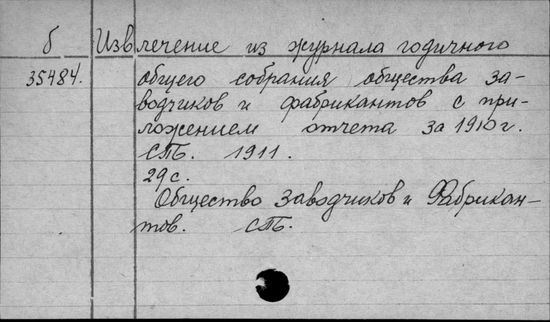 б Извлечение из журнала годичного
35484. общего собрания общества за-
водчиков и фабрикантов с при-
ложением отчета за 1910 г.
СПб. 1911.
29 с.
Общество Заводчиков и Фабрикан-
тов. СПб.